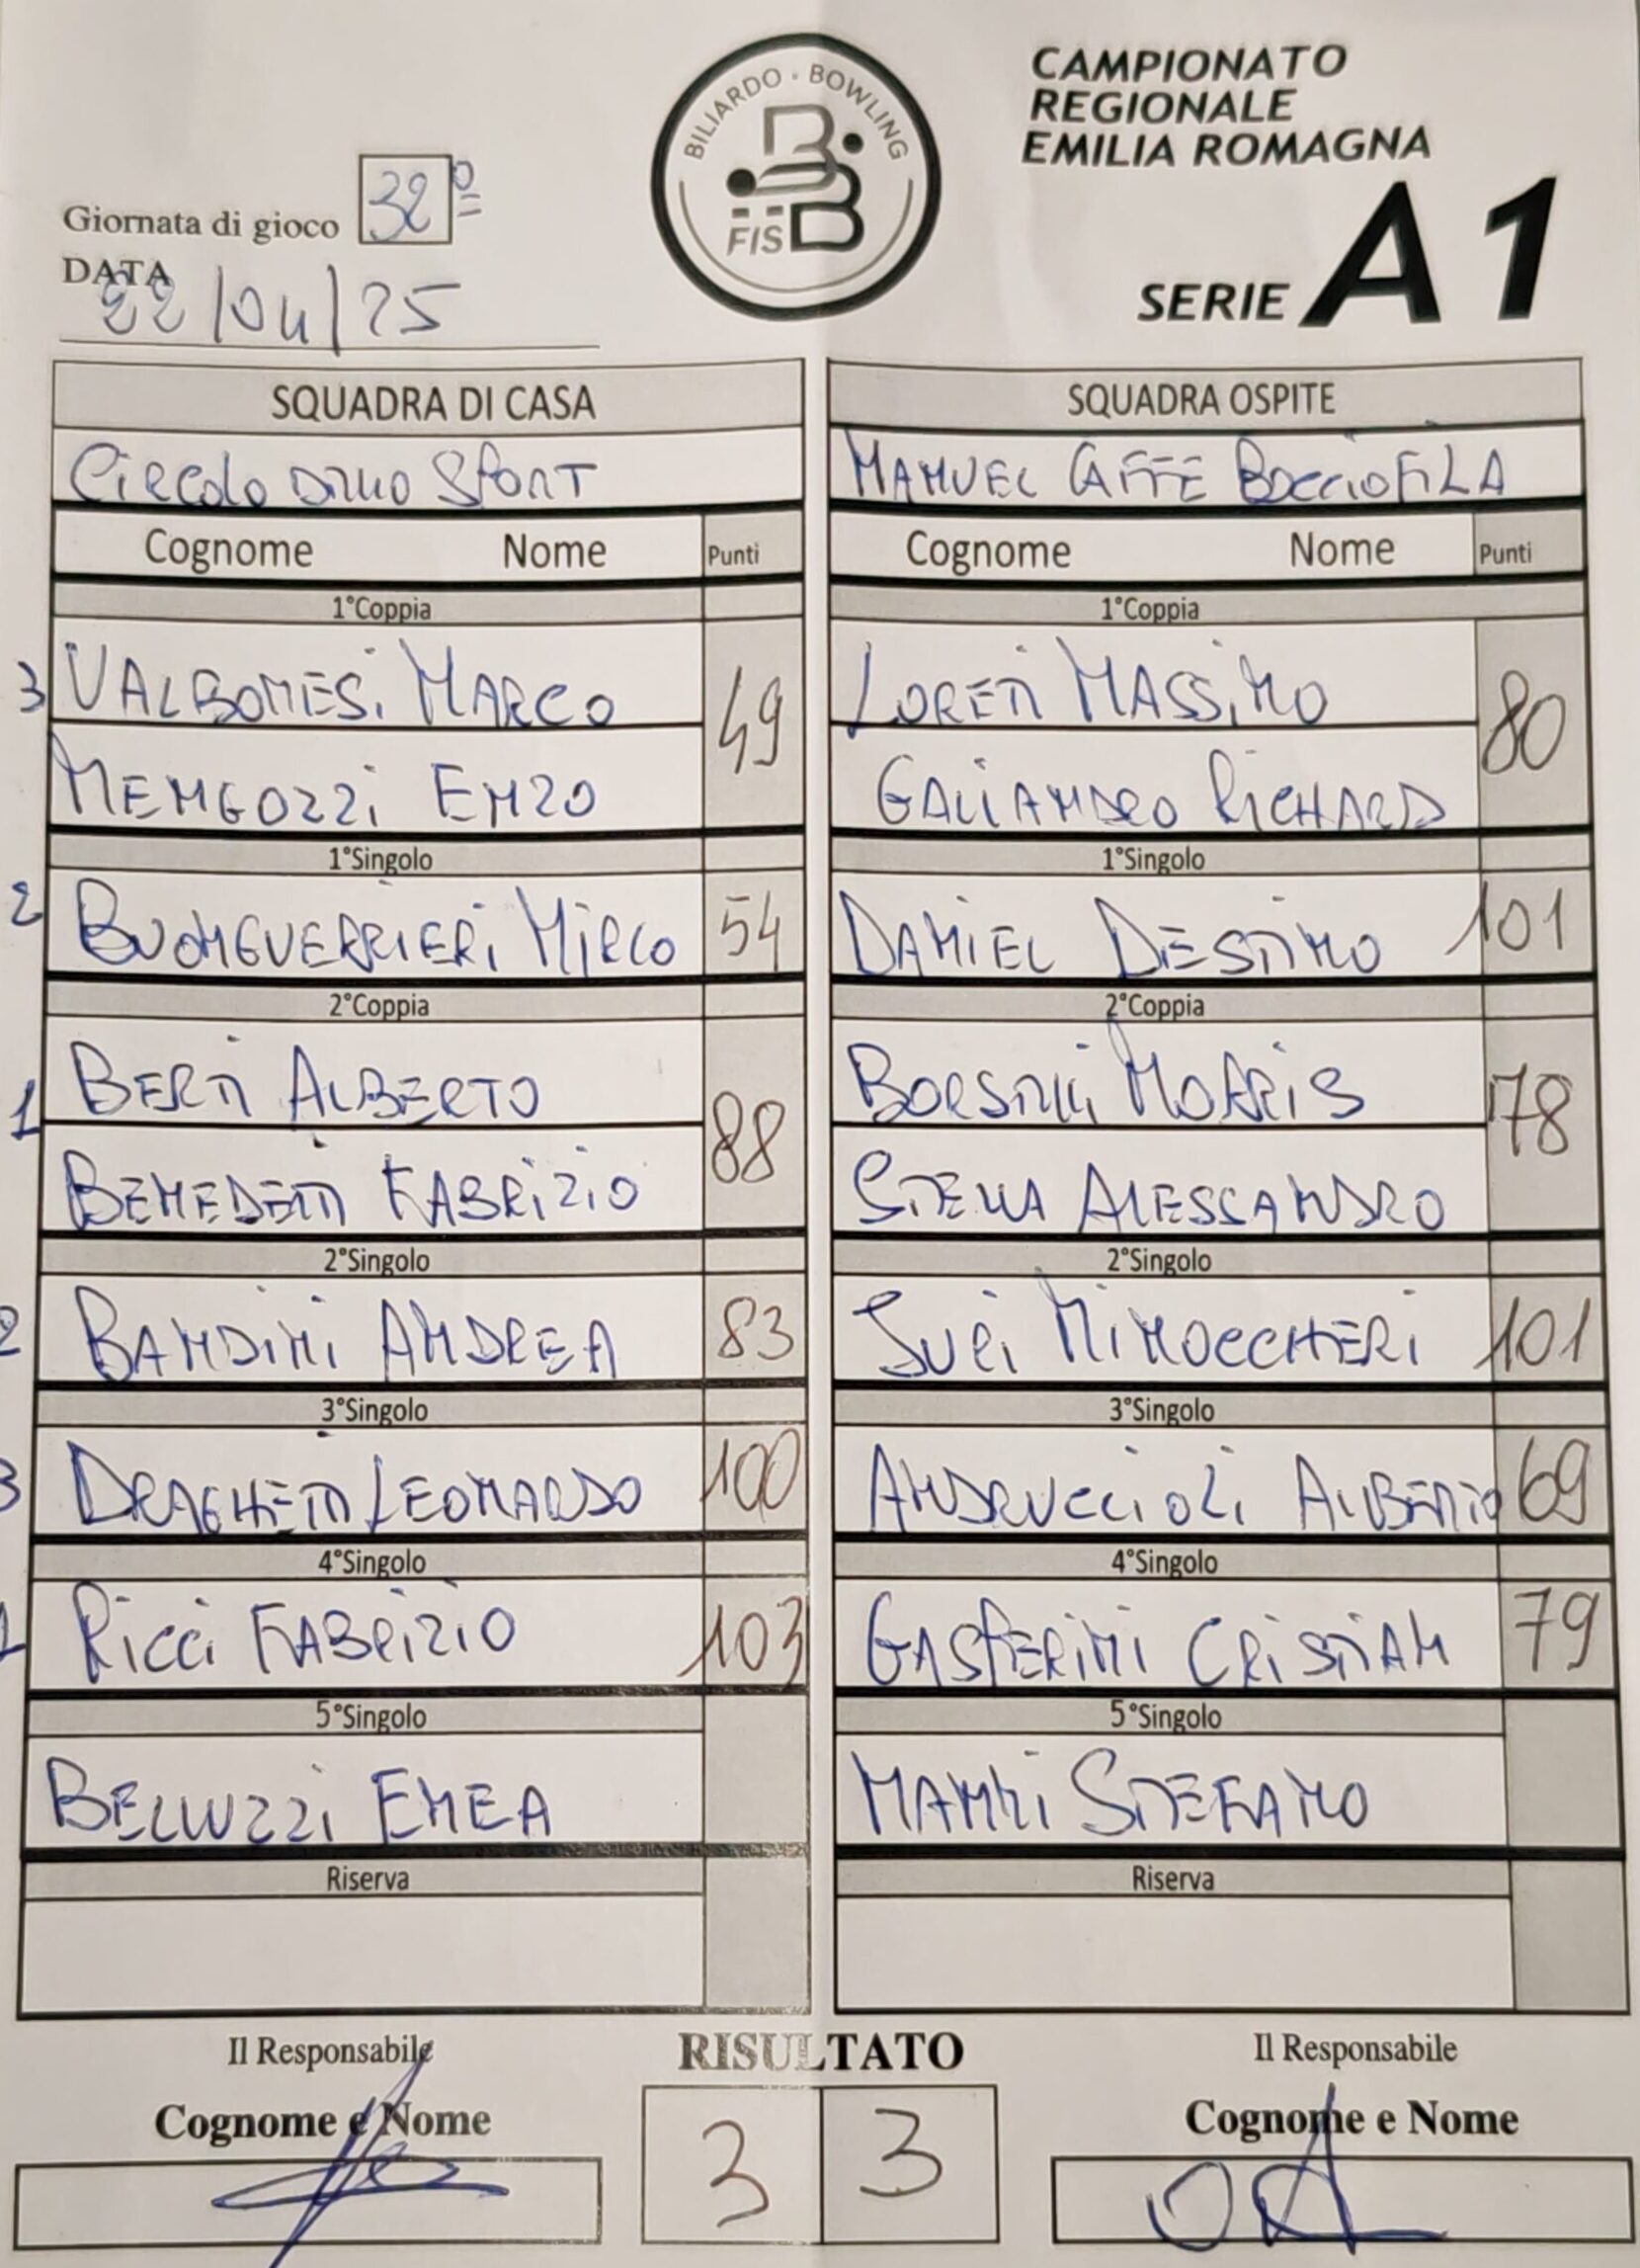 BILIARDO · BOWLING
FISBB
CAMPIONATO
REGIONALE
EMILIA ROMAGNA
SERIE A1
Giornata di gioco 32°
DATA
22/04/25
SQUADRA DI CASA
Circolo DINO SPORT
Cognome Nome Punti
1°Coppia
3 VALBONESi MARCO 49
MENGOZZi ENZO
1°Singolo
2 BUONGUERRIERi MiRCO 54
2°Coppia
1 BERTi ALBERTO 88
BENEDETTi FABRiZiO
2°Singolo
2 BANDiNi ANDREA 83
3°Singolo
3 DRAGHETTi LEONARDO 100
4°Singolo
1 Ricci FABRiZiO 103
5°Singolo
BELLUZZi ENEA
Riserva
SQUADRA OSPITE
MANUEL CAFFE BOCCiOFiLA
Cognome Nome Punti
1°Coppia
LORETi MASSiMO 80
GALiANDRO RiCHARD
1°Singolo
DANiEL DESTiNO 101
2°Coppia
BORSiNi MORRiS 78
STELLA ALESSANDRO
2°Singolo
JURi MiNOCCHERi 101
3°Singolo
ANDRUCCiOLi 69
4°Singolo
GASPERiNi CRiSTiAN 79
5°Singolo
NANNi STEFANO
Riserva
Il Responsabile
Cognome e Nome
RISULTATO
3 3
Il Responsabile
Cognome e Nome